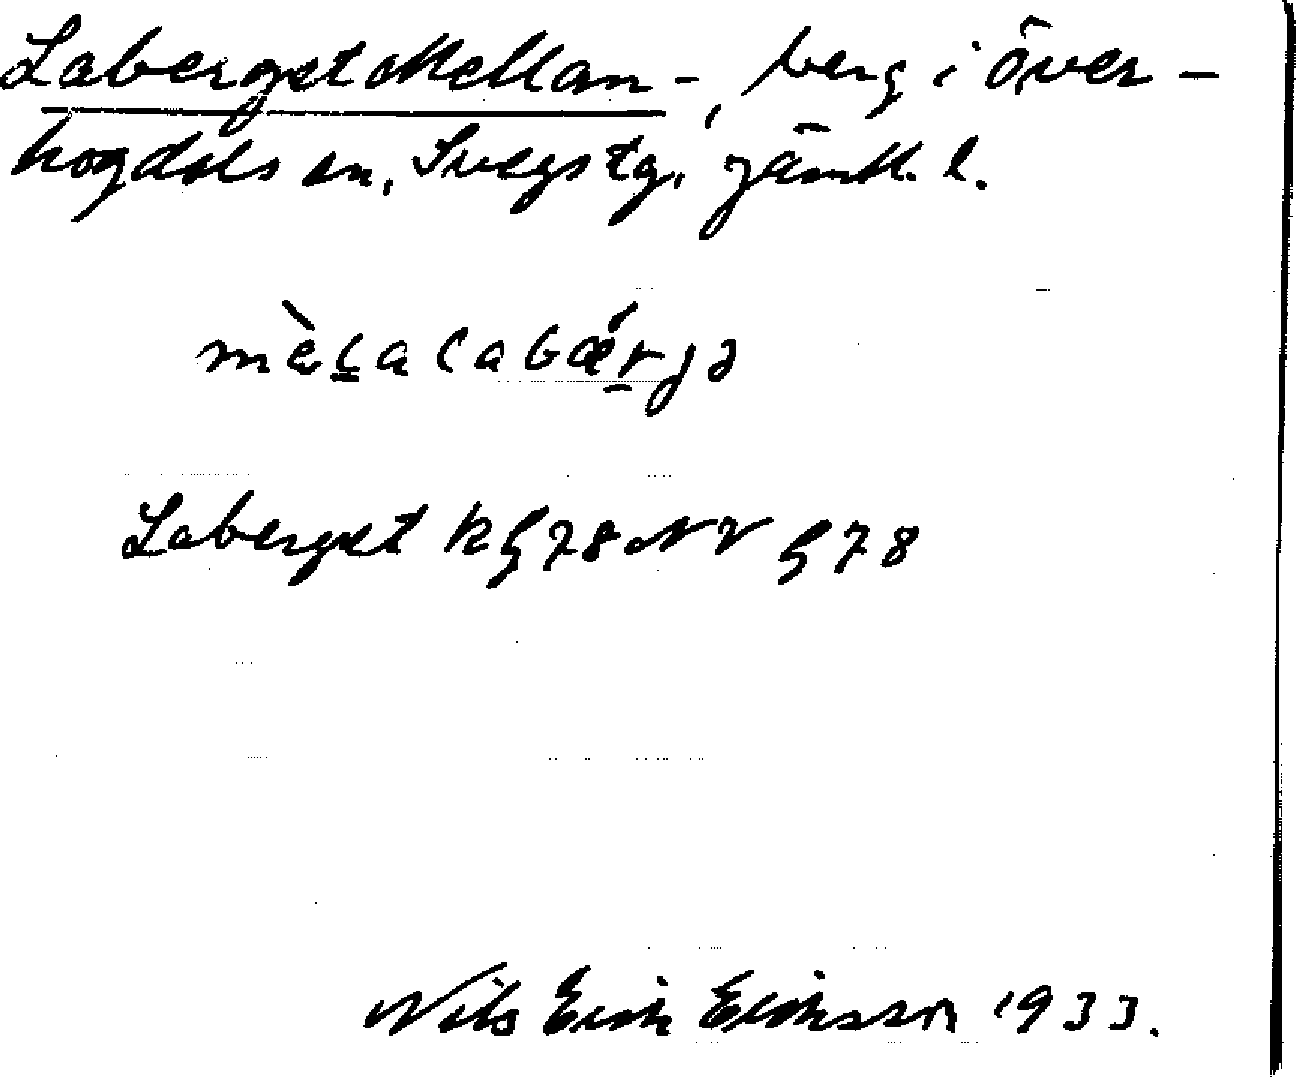 Laberget Mellan-, berg i Över-
hogdals sn, Svegs tg, Jämtl. l.
mὲḻalabǽṟjə
Laberget K G 78 NV G 78
Nils Erik Eriksson 1933.